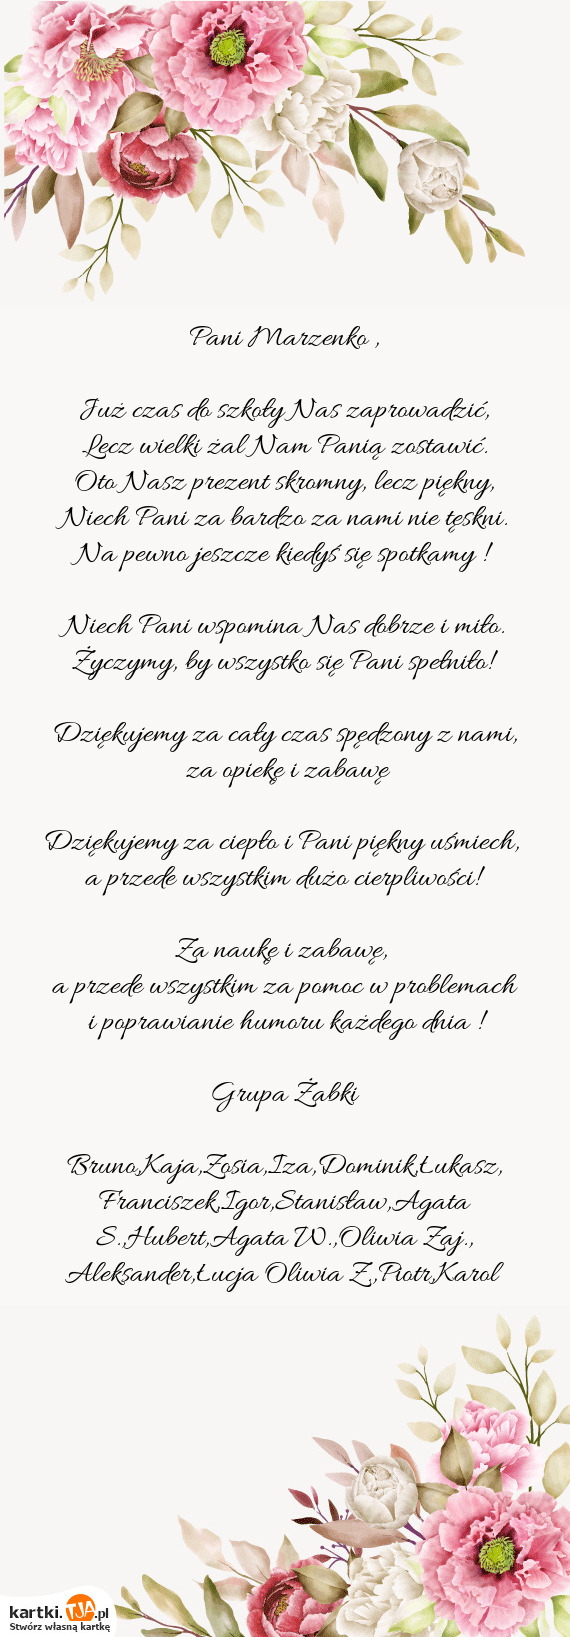 Pani Marzenko ,
Już czas do szkoły Nas zaprowadzić,
Lecz wielki żal Nam Panią zostawić.
Oto Nasz prezent skromny, lecz piękny,
Niech Pani za bardzo za nami nie tęskni.
Na pewno jeszcze kiedyś się spotkamy !
Niech Pani wspomina Nas dobrze i miło.
Życzymy, by wszystko się Pani spełniło!
Dziękujemy za cały czas spędzony z nami,
za opiekę i zabawę
Dziękujemy za ciepło i Pani piękny uśmiech,
a przede wszystkim dużo cierpliwości!
Za naukę i zabawę,
a przede wszystkim za pomoc w problemach
i poprawianie humoru każdego dnia !
Grupa Żabki
Bruno,Kaja,Zosia,Iza,Dominik,Łukasz,
Franciszek,Igor,Stanisław,Agata
S.,Hubert,Agata W.,Oliwia Zaj.,
Aleksander,Łucja Oliwia Z.,Piotr,Karol
kartki.TJA.pl
Stwórz własną kartkę